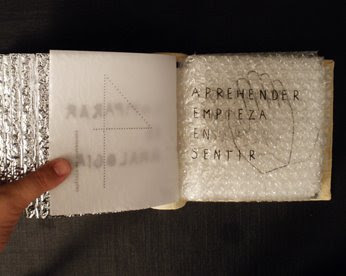 APREHENDER
EMPIEZA
EN
SENTIR